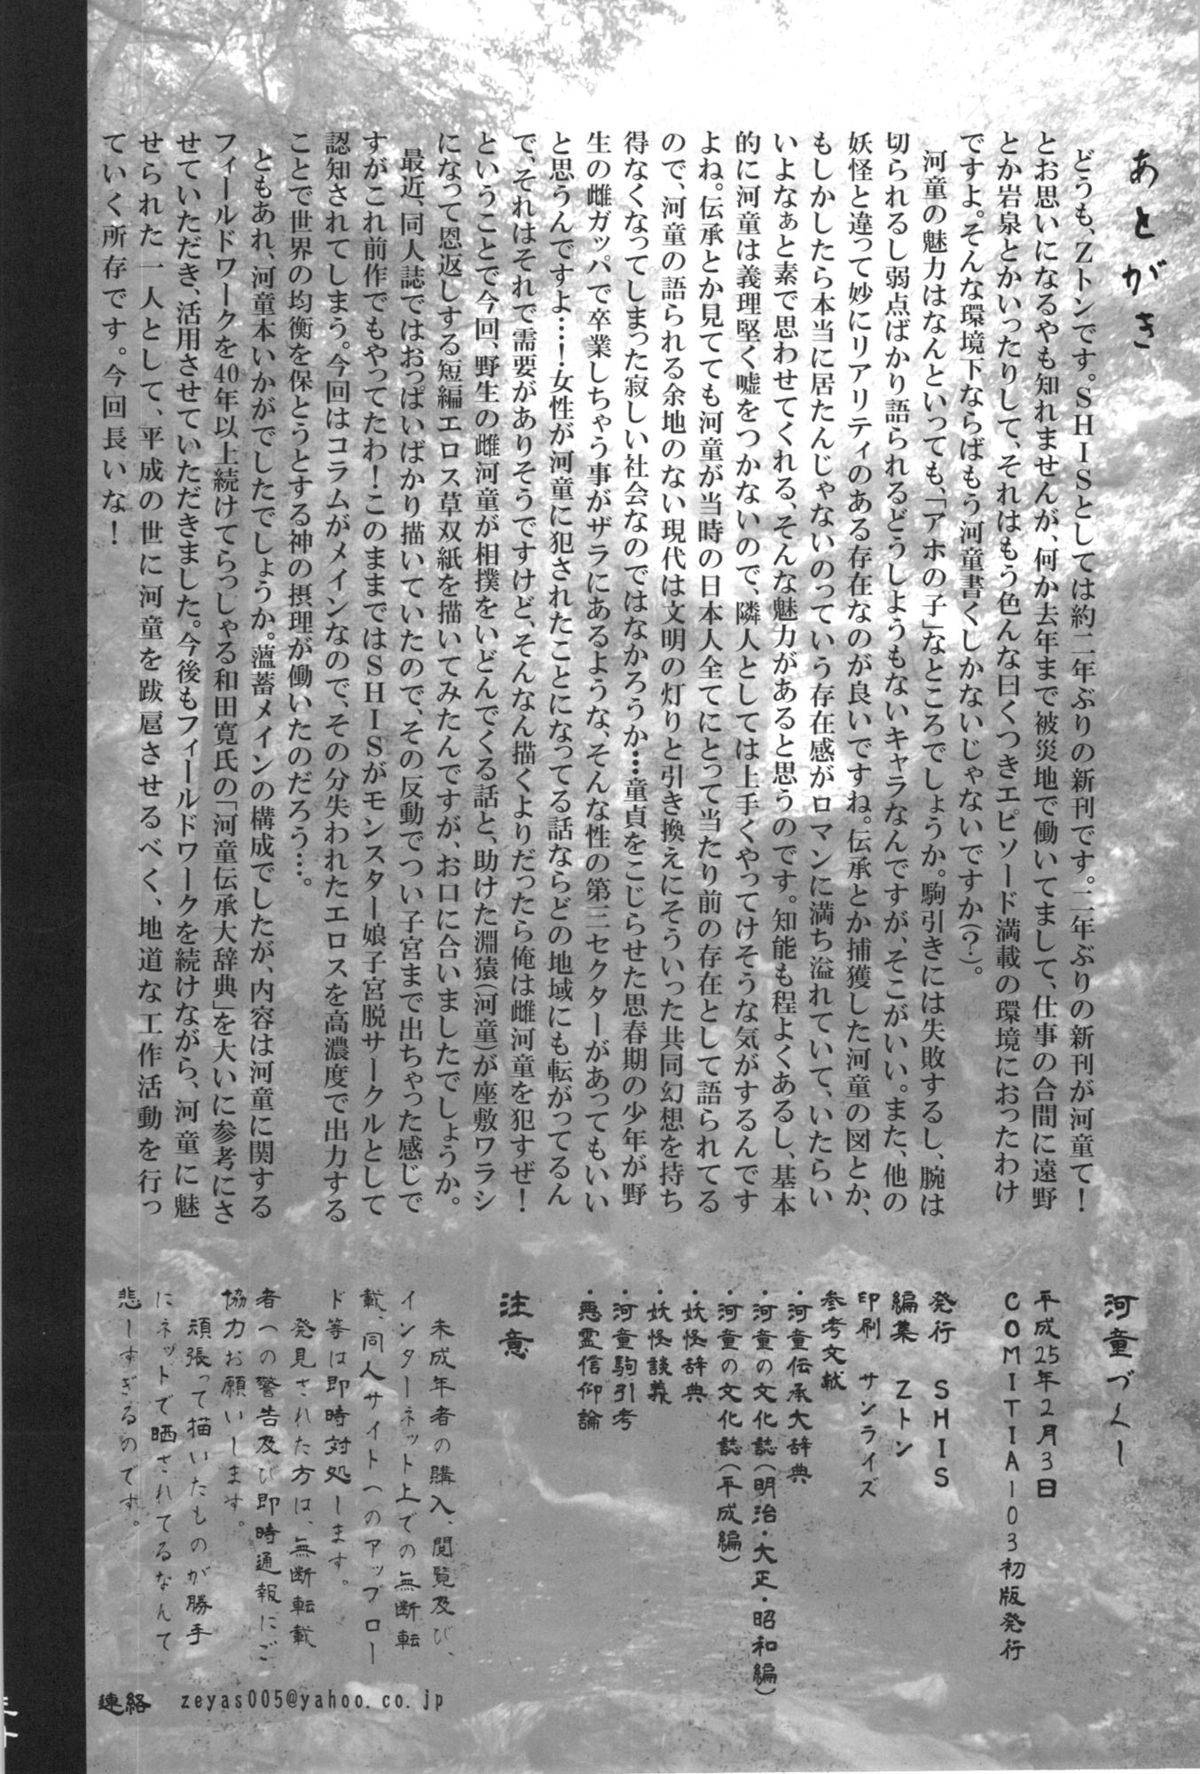 あとがき
どうも、Zトンです。SHISとしては約二年ぶりの新刊です。二年ぶりの新刊が河童て！
とお思いになるやも知れませんが、何か去年まで被災地で働いてまして、仕事の合間に遠野
とか岩泉とかいったりして、それはもう色んな曰くつきエピソード満載の環境におったわけ
ですよ。そんな環境下ならばもう河童書くしかないじゃないですか(？)。
河童の魅力はなんといっても、「アホの子」なところでしょうか。駒引きには失敗するし、腕は
切られるし弱点ばかり語られるどうしようもないキャラなんですが、そこがいい。また、他の
妖怪と違って妙にリアリティのある存在なのが良いですね。伝承とか捕獲した河童の図とか、
もしかしたら本当に居たんじゃないのっていう存在感がロマンに満ち溢れていて、いたらい
いよなぁと素で思わせてくれる、そんな魅力があると思うのです。知能も程よくあるし、基本
的に河童は義理堅く嘘をつかないので、隣人としては上手くやってけそうな気がするんです
よね。伝承とか見てても河童が当時の日本人全てにとって当たり前の存在として語られてる
ので、河童の語られる余地のない現代は文明の灯りと引き換えにそういった共同幻想を持ち
得なくなってしまった寂しい社会なのではなかろうか…童貞をこじらせた思春期の少年が野
生の雌ガッパで卒業しちゃう事がザラにあるような、そんな性の第三セクターがあってもいい
と思うんですよ…！女性が河童に犯されたことになってる話ならどの地域にも転がってるん
で、それはそれで需要がありそうですけど、そんなん描くよりだったら俺は雌河童を犯すぜ！
ということで今回、野生の雌河童が相撲をいどんでくる話と、助けた淵猿(河童)が座敷ワラシ
になって恩返しする短編エロス草双紙を描いてみたんですが、お口に合いましたでしょうか。
最近、同人誌ではおっぱいばかり描いていたので、その反動でつい子宮まで出ちゃった感じで
すがこれ前作でもやってたわ！このままではSHISがモンスター娘子宮脱サークルとして
認知されてしまう。今回はコラムがメインなので、その分失われたエロスを高濃度で出力する
ことで世界の均衡を保とうとする神の摂理が働いたのだろう…。
ともあれ、河童本いかがでしたでしょうか。薀蓄メインの構成でしたが、内容は河童に関する
フィールドワークを40年以上続けてらっしゃる和田寛氏の「河童伝承大辞典」を大いに参考にさ
せていただき、活用させていただきました。今後もフィールドワークを続けながら、河童に魅
せられた一人として、平成の世に河童を跋扈させるべく、地道な工作活動を行っ
ていく所存です。今回長いな！
河童づくし
平成25年2月3日
COMITIA103初版発行
発行　SHIS
編集　Zトン
印刷　サンライズ
参考文献
・河童伝承大辞典
・河童の文化誌(明治・大正・昭和編)
・河童の文化誌(平成編)
・妖怪辞典
・妖怪談義
・河童駒引考
・悪霊信仰論
注意
未成年者の購入、閲覧及び、
インターネット上での無断転
載、同人サイトへのアップロー
ド等は即時対処します。
発見された方は、無断転載
者への警告及び即時通報にご
協力お願いします。
頑張って描いたものが勝手
にネットで晒されてるなんて
悲しすぎるのです。
連絡　zeyas005@yahoo.co.jp